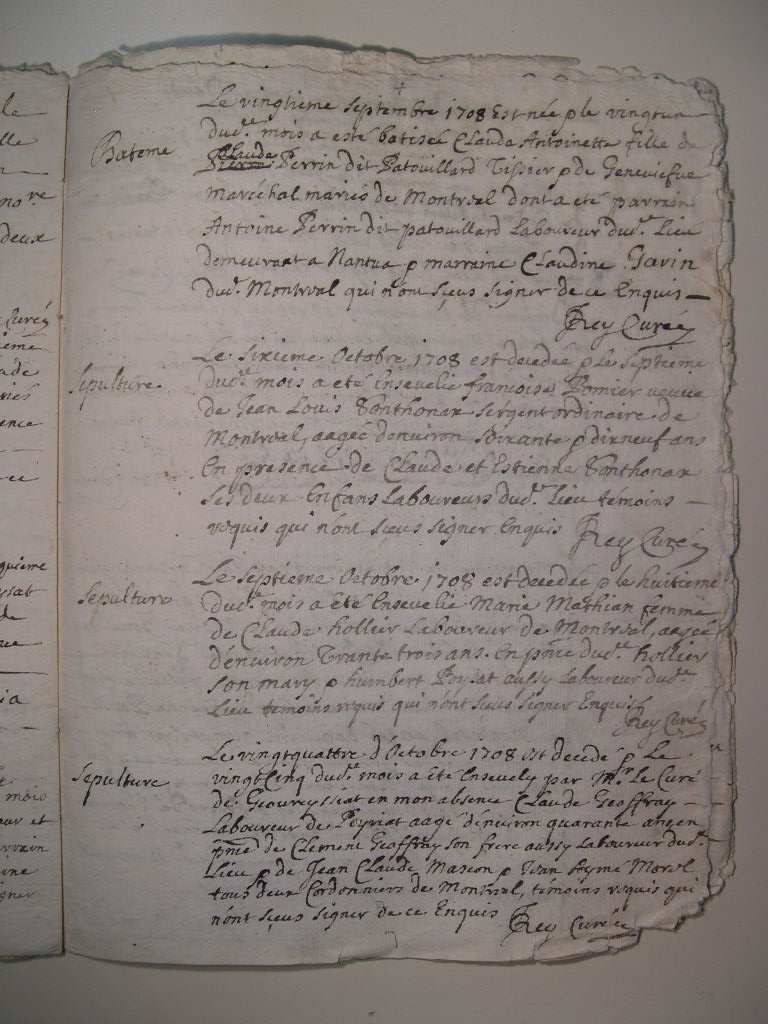 lle
no.re
deux
Curé
Bateme
Le vingtieme Septembre 1708 Est née & le vingtun
dud.t mois a esté batiseé Claude Antoinette fille de
Claude
Pierre Perrin dit Patouillard Tissier & de Geneviefue
maréchal mariés de Montreal dont a eté parrain
Antoine Perrin dit patouillard Laboureur dud.t Lieu
demeurant a Nantua & marraine Claudine Gavin
dud.t Montreal qui n'ont sçeus signer de ce Enquis —
Rey Curé
Sepulture
Le sixieme Octobre 1708 est decedeé & le septieme
dud.t mois a eté Ensevelie francoise Pomier veuve
de Jean Louis Vonthonax sergent ordinaire de
Montreal, aageé d'environ soixante & dixneuf ans
En presence de Claude et Estienne Vonthonax
ses deux Enfans Laboureurs dud.t Lieu temoins —
requis qui n'ont sçeus signer Enquis
Rey Curé
Sepulture
Le septieme Octobre 1708 est decedeé & le huitieme
dud.t mois a eté Ensevelie Marie Mathian femme
de Claude hollier Laboureur de Montreal, aageé
d'environ Trante trois ans. en pnce dud.t hollier
son mary & humbert Poysat aussy Laboureur dud.t
Lieu temoins requis qui n'ont sçeus signer Enquis
Rey Curé
Sepulture
Le vingtquattre d'Octobre 1708 est decedé & Le
vingtcinq dud.t mois a eté Ensevely par Mr. le Curé
de Geovreyssiat en mon absence Claude Geoffray —
Laboureur de Peyriat aagé d'environ quarante ans en
pnce de Clement Geoffray son frere aussy Laboureur dud.t
Lieu & de Jean Claude Masson & Jean Aymé Morel
tous deux Cordonniers de Montreal, temoins requis qui
n'ont sçeus signer de ce Enquis
Rey Curé